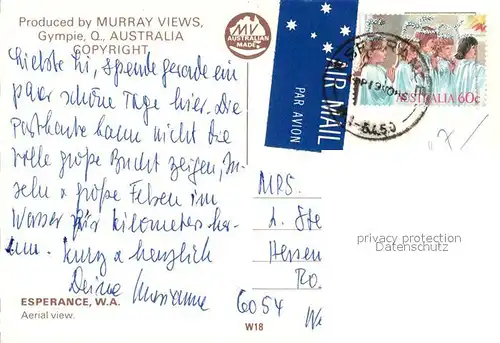 Produced by MURRAY VIEWS,
Gympie, Q., AUSTRALIA
COPYRIGHT
MV
AUSTRALIAN
MADE
AIR MAIL
PAR AVION
AUSTRALIA 60c
Liebste Li, spende gerade ein
paar schöne Tage hier. Die
Postkarte kann nicht die
volle große Bucht zeigen, In-
seln & große Felsen im
Wasser für Kilometer her-
um. Kurz & herzlich
Deine Marianne
MRS.
L. Ste
Hessen
Ro
6054
privacy protection
Datenschutz
ESPERANCE, W.A.
Aerial view.
W18